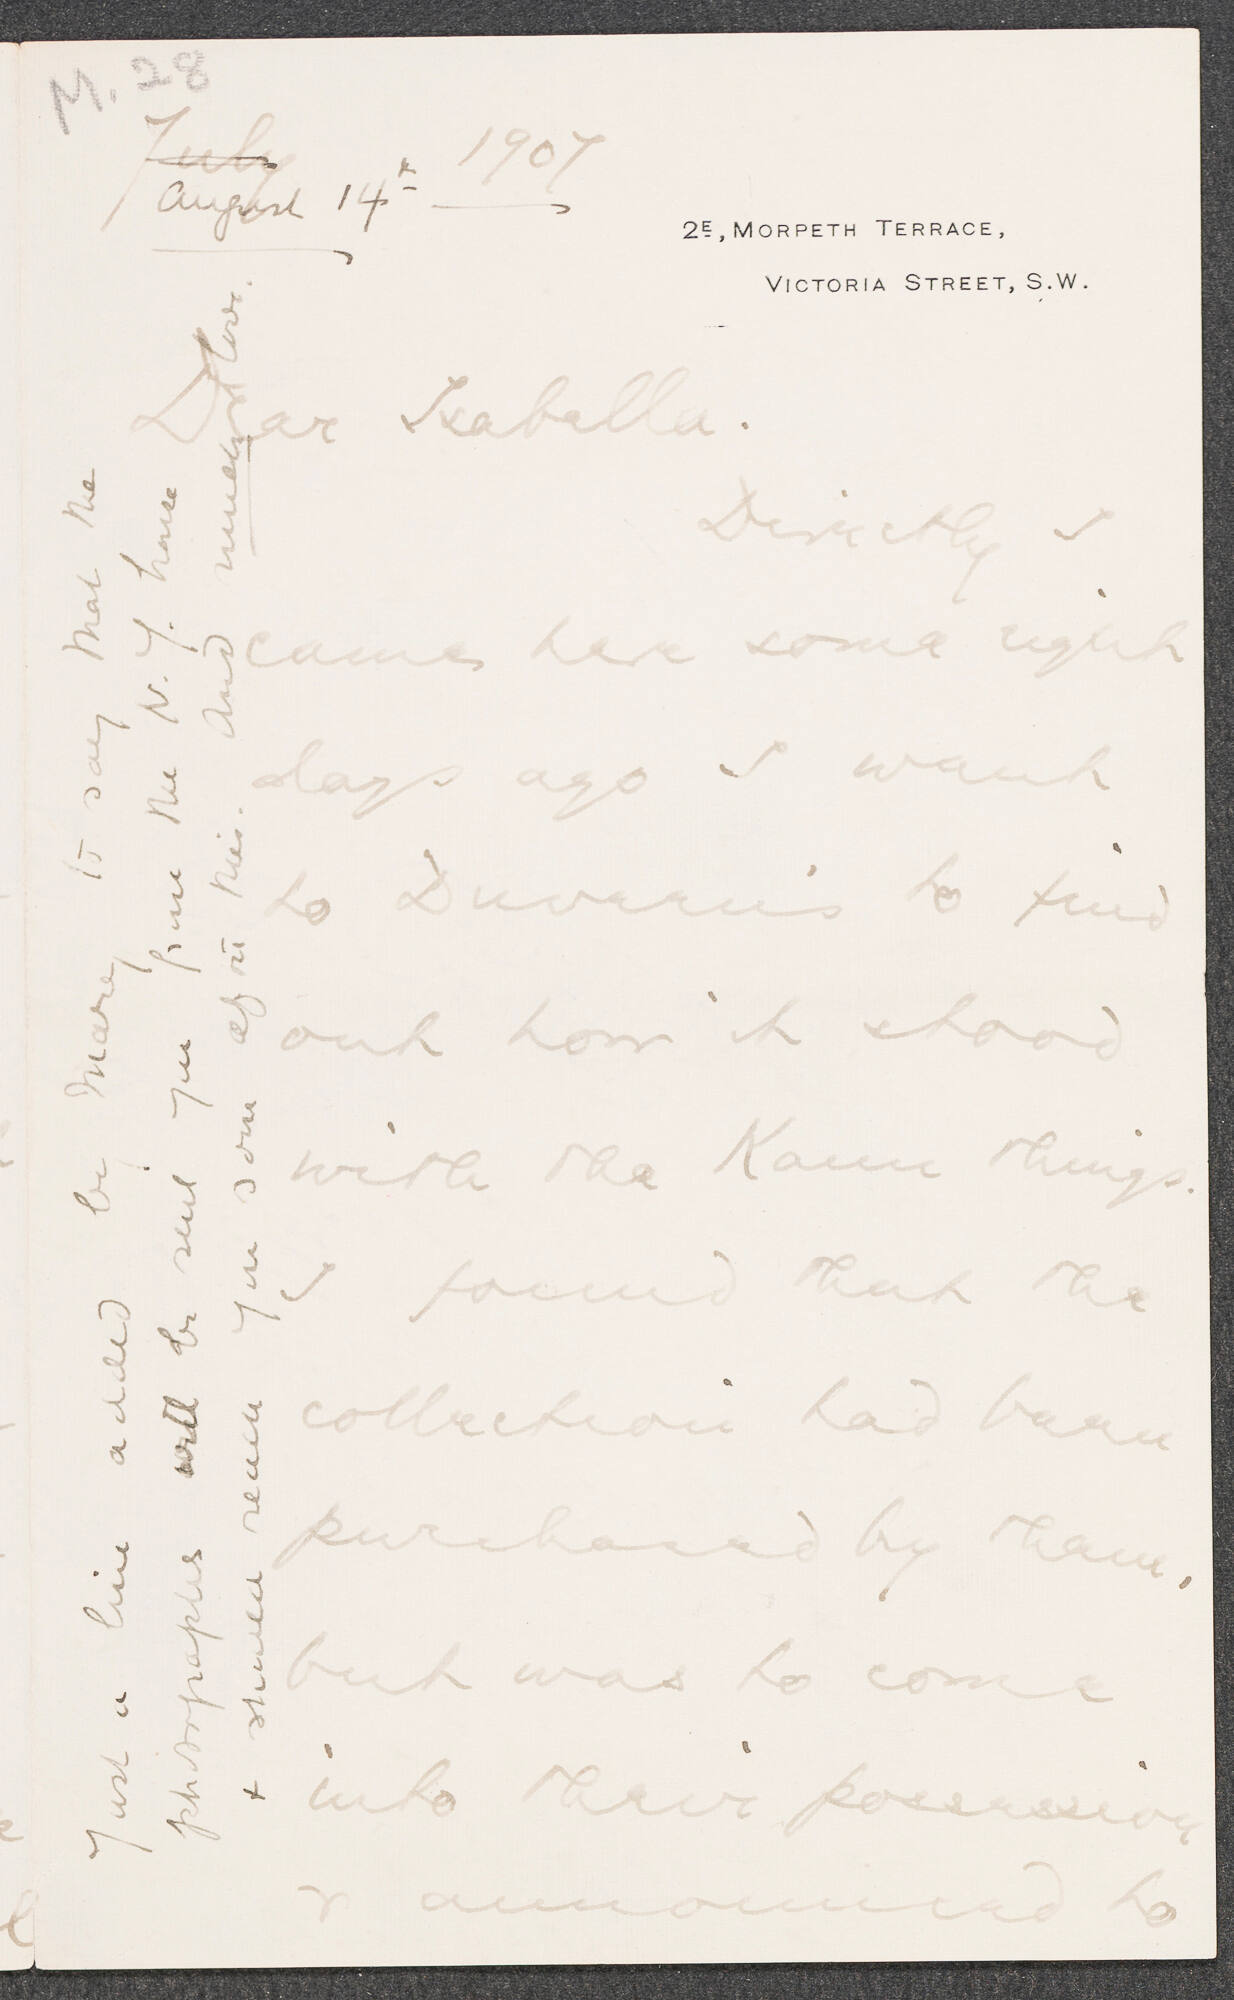 M. 28
July 1907
August 14th
2E, MORPETH TERRACE,
VICTORIA STREET, S.W.
Dear Isabella.
Directly I
came here some eight
days ago I went
to Duveen's to find
out how it stood
with the Kann things.
I found that the
collection had been
purchased by them,
but was to come
into their possession
& announced to
Just a line added by Mary to say that the
photographs will be sent you from the N.Y. house
& should reach you soon after this. And much love.